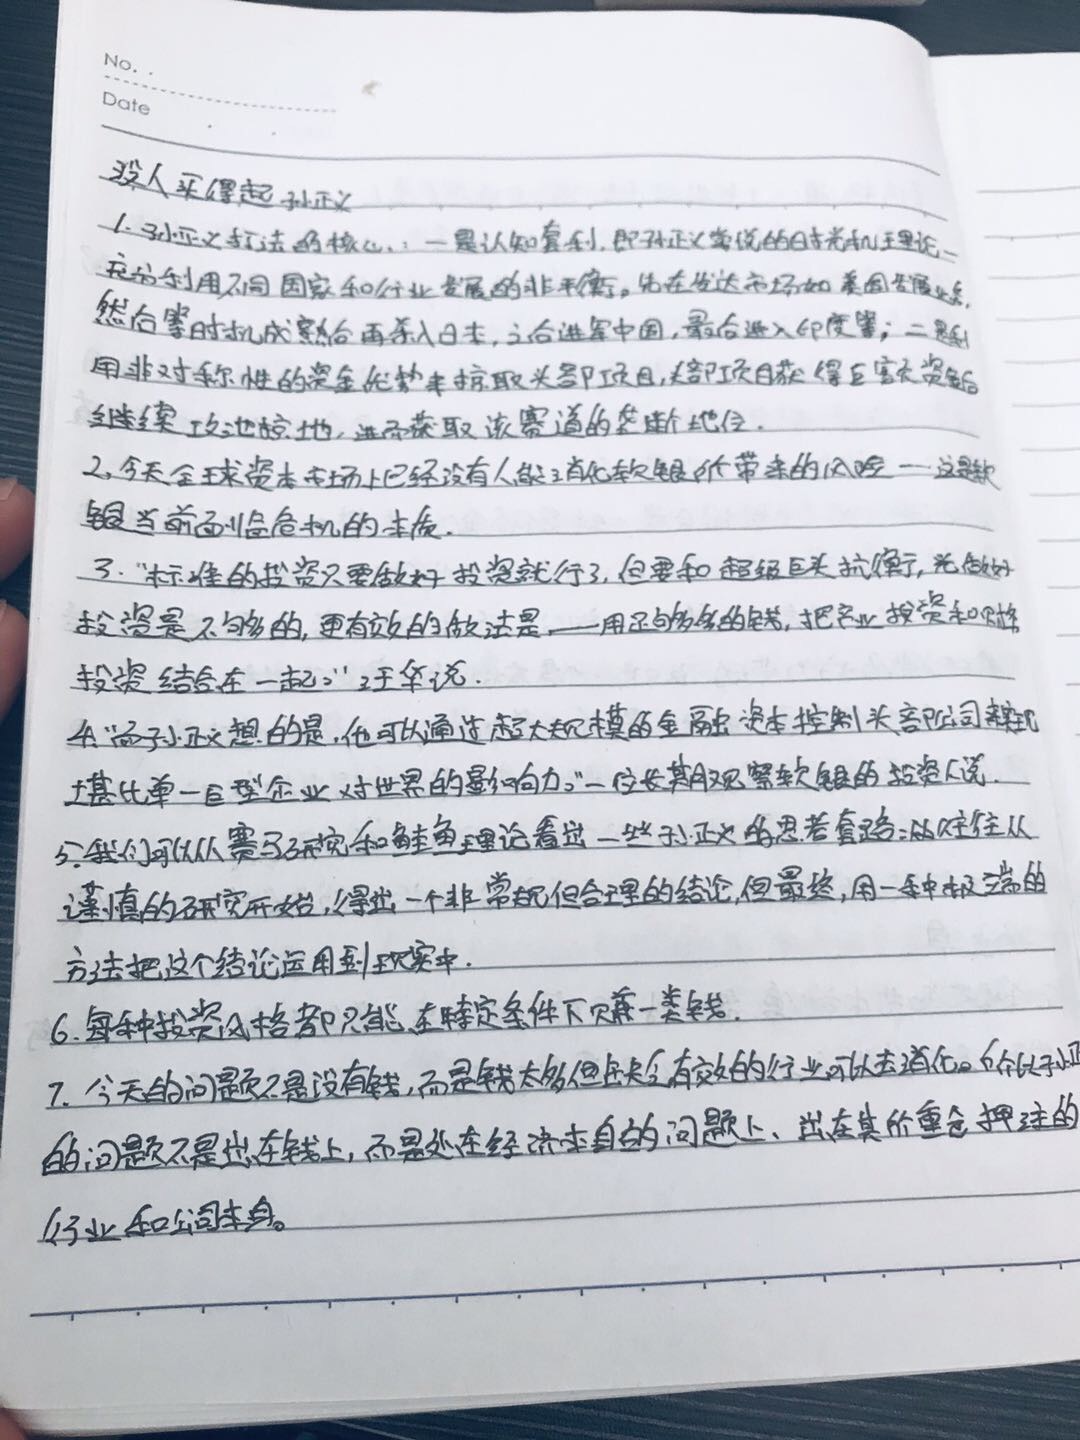 No.
Date
没人买得起孙正义
1.孙正义打法的核心:一是认知套利,即孙正义常说的时光机理论—
充分利用不同国家和行业发展的非平衡。先在发达市场如美国发展业务,
然后等时机成熟后再杀入日本,之后进军中国,最后进入印度等;二是利
用非对称性的资金优势来掠取头部项目,头部项目获得巨富大资金后
继续攻池掠地,进而获取该赛道的垄断地位.
2.今天全球资本市场上已经没有人能消化软银所带来的风险——这是软
银当前面临危机的本质.
3.“标准的投资只要做好投资就行了,但要和超级巨头抗衡,光做好
投资是不够的,更有效的做法是,——用足够多的钱,把产业投资和财务
投资结合在一起。”汪华说.
4.“而孙正义想的是,他可以通过超大规模的金融资本控制头部公司来实现
堪比单一巨型企业对世界的影响力。”一位长期观察软银的投资人说.
5.我们可以从赛马研究和鲑鱼理论看出一些孙正义的思考套路:他往往从
谨慎的研究开始,得出一个非常规但合理的结论,但最终,用一种极端的
方法把这个结论运用到现实中.
6.每种投资风格都只能在特定条件下赚一类钱.
7.今天的问题不是没有钱,而是钱太多但缺乏有效的行业可以去消化。所以孙正
的问题不是出在钱上,而是处在经济本身的问题上、出在其所重仓押注的
行业和公司本身。